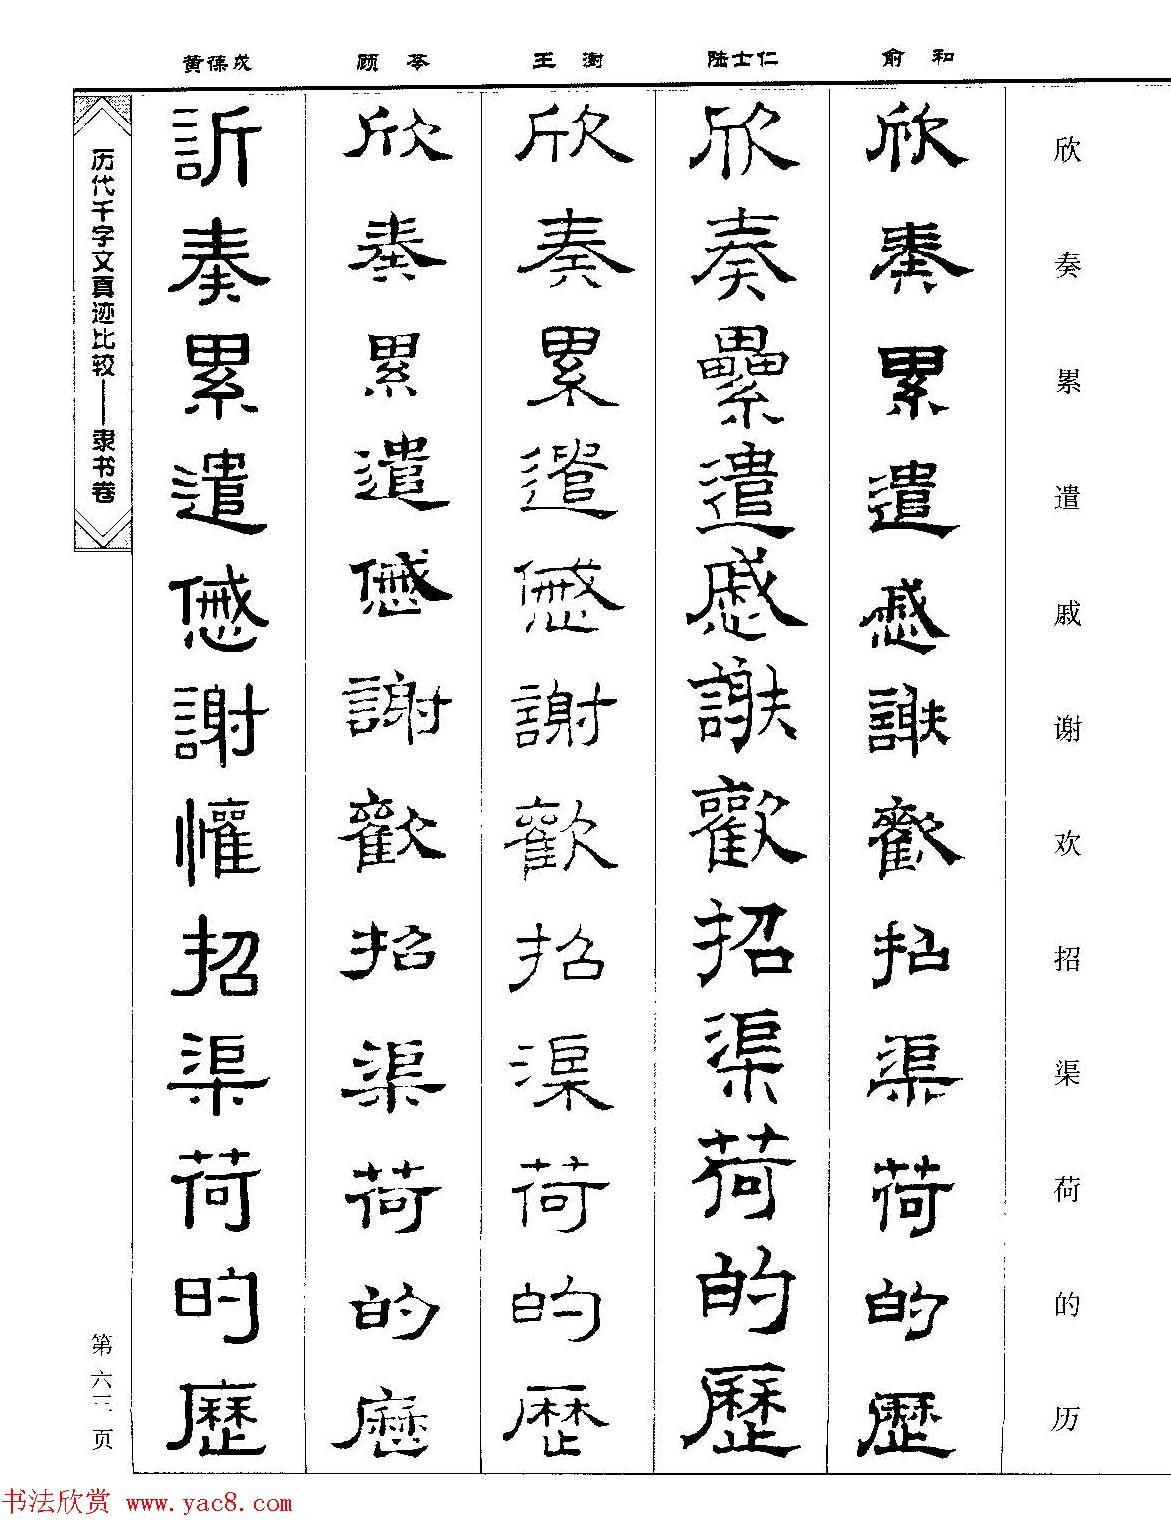 黄葆戉 顾苓 王澍 陆士仁 俞和
欣奏累遣戚谢欢招渠荷的历
欣奏累遣慼謝歡招渠荷的歷
欣奏纍遣慼謝歡招渠荷的歷
欣奏累遣慼謝歡招渠荷的歷
欣奏累遣慼謝歡招渠荷的歷
訢奏累遣慼謝懽招渠荷旳歷
历代千字文真迹比较——隶书卷
第六三页
书法欣赏 www.yac8.com